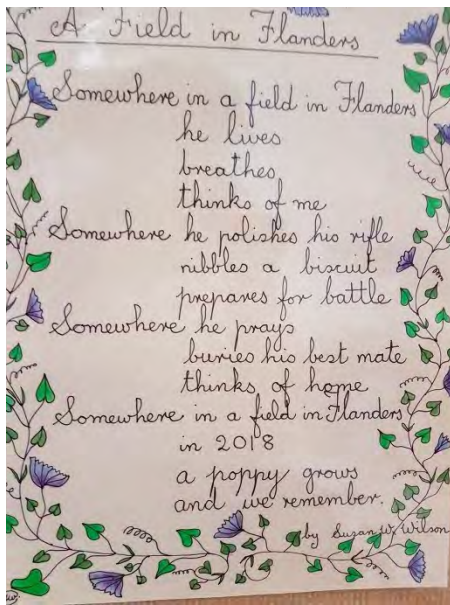 A Field in Flanders
Somewhere in a field in Flanders
he lives
breathes
thinks of me
Somewhere he polishes his rifle
nibbles a biscuit
prepares for battle
Somewhere he prays
buries his best mate
thinks of home
Somewhere in a field in Flanders
in 2018
a poppy grows
and we remember.
by Susan W. Wilson